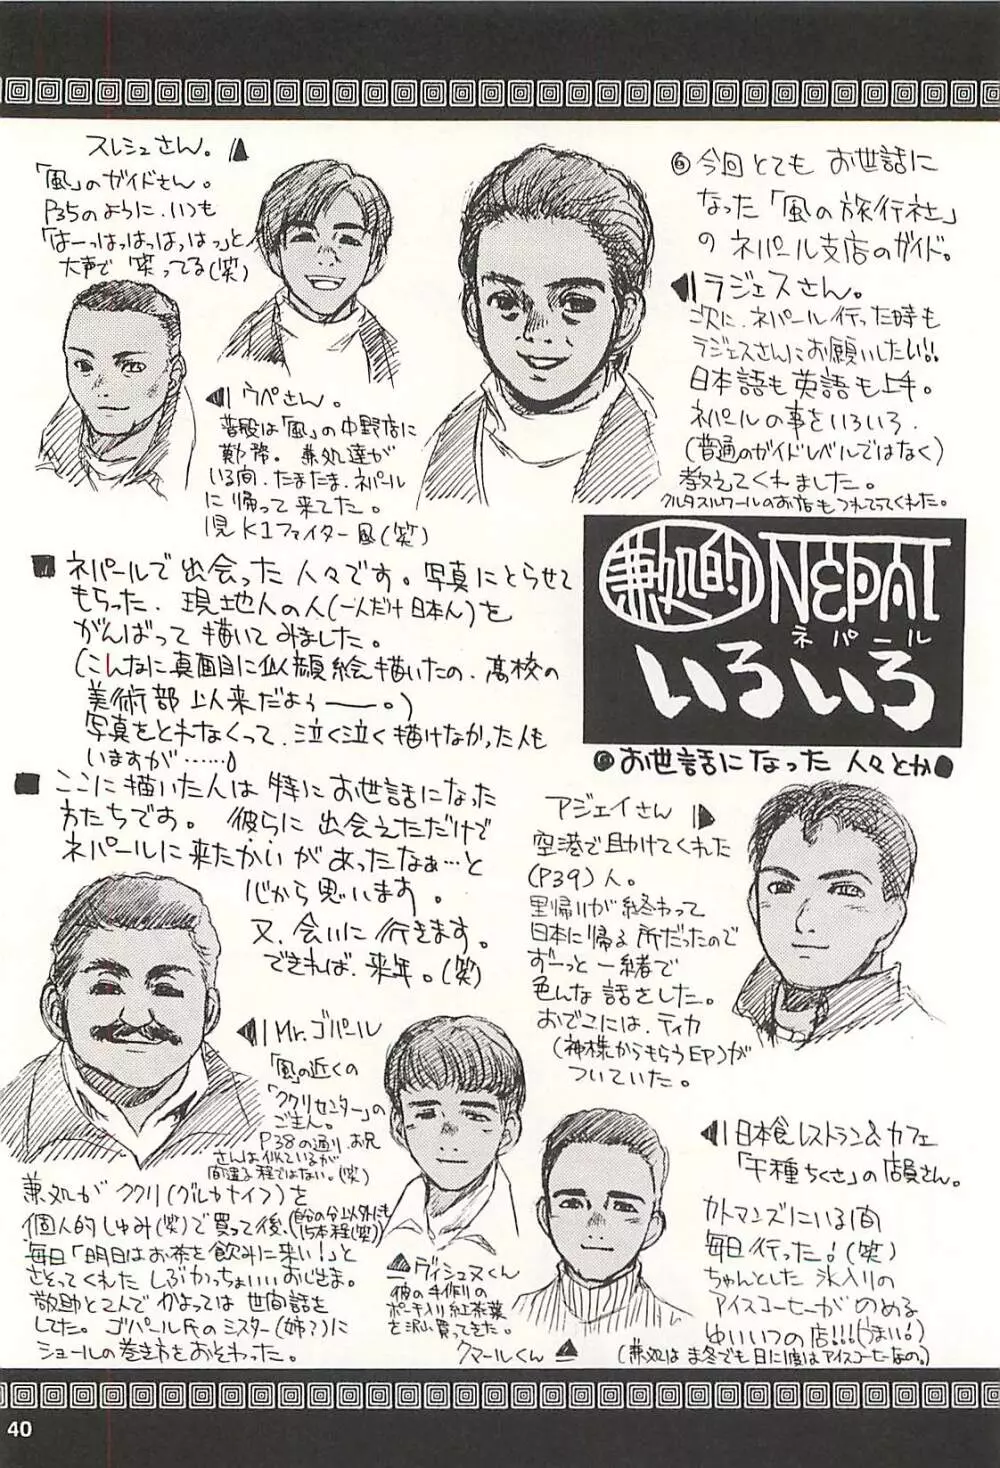 ◎今回とても お世話に
なった「風の旅行社」
の ネパール支店のガイド。
ラジェスさん。
次に、ネパール行った時も
ラジェスさんにお願いしたい!!
日本語も英語も上手。
ネパールの事をいろいろ、
(普通のガイドレベルではなく)
教えてくれました。
クルタスルワールのお店もつれてってくれた。
スレシュさん。
「風」のガイドさん。
P35のように、いつも
「はーっはっはっはっはっ」と
大声で 笑ってる(笑)
ウペさん。
普段は「風」の中野店に
勤務。兼処達が
いる間、たまたま、ネパール
に帰って来てた。
K1ファイター風(笑)
兼処的 NEPAL
ネパール
いろいろ
お世話になった 人々とか
■ネパールで出会った人々です。写真にとらせて
もらった、現地人の人(一人だけ日本人)を
がんばって描いてみました。
(こんなに真面目に似顔絵描いたの、高校の
美術部以来だよぅーー。)
写真をとれなくって、泣く泣く描けなかった人も
いますが……
■ここに描いた人は特にお世話になった
方たちです。彼らに出会えただけで
ネパールに来たかいがあったなぁ…と
心から思います。
又、会いに行きます。
できれば、来年。(笑)
アジェイさん
空港で助けてくれた
(P39)人。
里帰りが終わって
日本に帰る所だったので
ずーっと一緒で
色んな話をした。
おでこには、ティカ
(神様からもらう印)が
ついていた。
Mr.ゴパール
「風」の近くの
「ククリセンター」の
ご主人。
P38の通り、お兄
さんは似ているが
間違う程ではない。(笑)
兼処がククリ(グルカナイフ)を
個人的しゅみ(笑)で買って後、
(自分の分以外にも
15本程(笑))
毎日「明日はお茶を飲みに来い!」と
さそってくれた しぶかっちょいいおじさま。
敬助と2人でかよっては世間話を
してた。ゴパール氏のミスター(姉?)に
ショールの巻き方をおそわった。
ヴィシュヌくん
彼の手作りの
ポーチ入り紅茶葉
を沢山買ってきた。
クマールくん
日本食レストラン&カフェ
「千種ちくさ」の店員さん。
カトマンズにいる間
毎日行った!(笑)
ちゃんとした氷入りの
アイスコーヒーがのめる
ゆいいつの店!!!(うまい!)
(兼処は真冬でも日に1度はアイスコーヒーなの。)
40